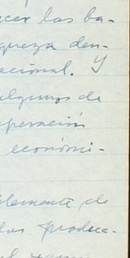 cer las ba-
queza den-
acional. Y
algunos de
peración
económi-
lamente de
las produc-